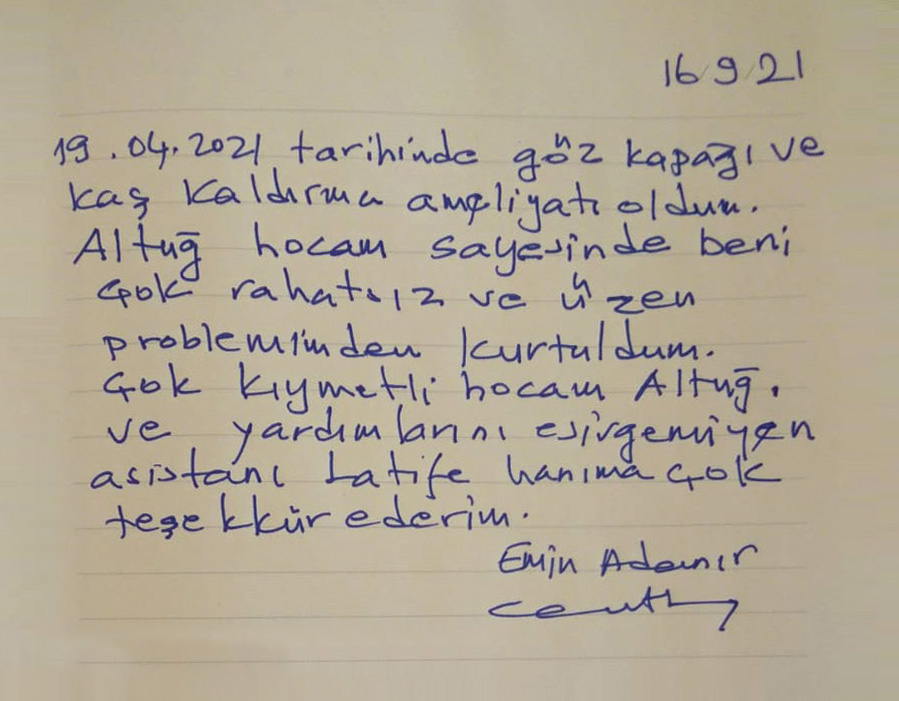 16 9 21
19.04.2021 tarihinde göz kapağı ve
kaş kaldırma ameliyatı oldum.
Altuğ hocam sayesinde beni
çok rahatsız ve üzen
problemimden kurtuldum.
Çok kıymetli hocam Altuğ.
ve yardımlarını esirgemiyen
asistanı Latife hanıma çok
teşekkür ederim.
Emin